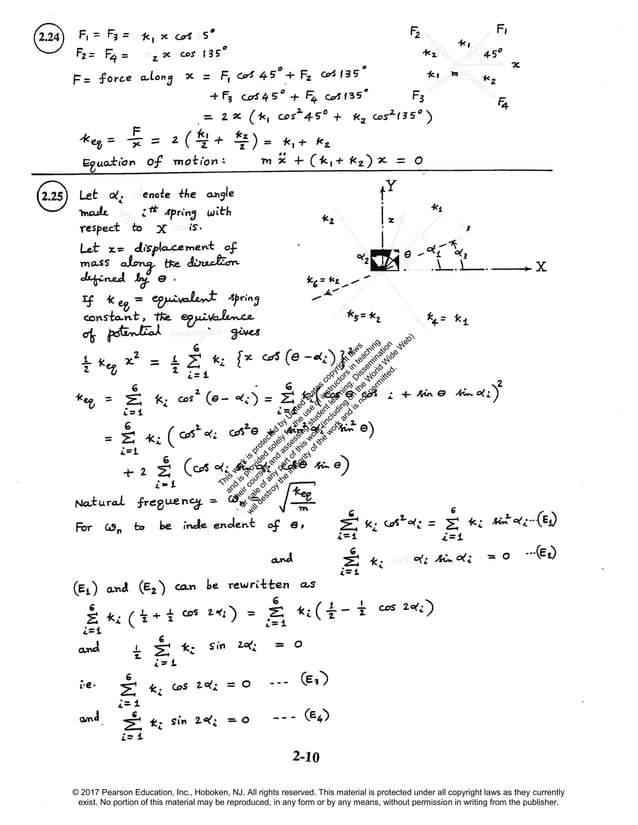 2.24 F₁ = F₃ = k₁ x cos 5°
F₂ = F₄ = 2 x cos 135°
F = force along x = F₁ cos 45° + F₂ cos 135°
+ F₃ cos 45° + F₄ cos 135°
= 2x (k₁ cos² 45° + k₂ cos² 135°)
k_eq = F/x = 2 (k₁/2 + k₂/2) = k₁ + k₂
Equation of motion: m ẍ + (k₁ + k₂) x = 0
F₂ F₁
k₁
k₂ 45°
x
k₁ m k₂
F₃ F₄
2.25 Let αᵢ enote the angle
made iᵗʰ spring with
respect to X is.
Let x = displacement of
mass along the direction
defined by θ.
If k_eq = equivalent spring
constant, the equivalence
of potential gives
Y
k₂ x k₁
3
α₂ θ α₁ α₃
X
k₆ = k₂
k₅ = k₂ k₄ = k₁
½ k_eq x² = ½ Σ⁶ᵢ₌₁ kᵢ {x cos (θ - αᵢ)}²
k_eq = Σ⁶ᵢ₌₁ kᵢ cos² (θ - αᵢ) = Σ⁶ᵢ₌₁ kᵢ (cos θ cos i + sin θ sin αᵢ)²
= Σ⁶ᵢ₌₁ kᵢ (cos² αᵢ cos² θ + sin² αᵢ sin² θ)
+ 2 Σ⁶ᵢ₌₁ (cos αᵢ sin αᵢ cos θ sin θ)
Natural frequency = ωₙ = √(k_eq/m)
For ωₙ to be inde endent of θ, Σ⁶ᵢ₌₁ kᵢ cos² αᵢ = Σ⁶ᵢ₌₁ kᵢ sin² αᵢ --- (E₁)
and Σ⁶ᵢ₌₁ kᵢ cos αᵢ sin αᵢ = 0 --- (E₂)
(E₁) and (E₂) can be rewritten as
Σ⁶ᵢ₌₁ kᵢ (½ + ½ cos 2αᵢ) = Σ⁶ᵢ₌₁ kᵢ (½ - ½ cos 2αᵢ)
and ½ Σ⁶ᵢ₌₁ kᵢ sin 2αᵢ = 0
i.e. Σ⁶ᵢ₌₁ kᵢ cos 2αᵢ = 0 --- (E₃)
and Σ⁶ᵢ₌₁ kᵢ sin 2αᵢ = 0 --- (E₄)
This work is protected by United States copyright laws
and is provided solely for the use of instructors in teaching
their courses and assessing student learning. Dissemination
or sale of any part of this work (including on the World Wide Web)
will destroy the integrity of the work and is not permitted.
2-10
© 2017 Pearson Education, Inc., Hoboken, NJ. All rights reserved. This material is protected under all copyright laws as they currently
exist. No portion of this material may be reproduced, in any form or by any means, without permission in writing from the publisher.